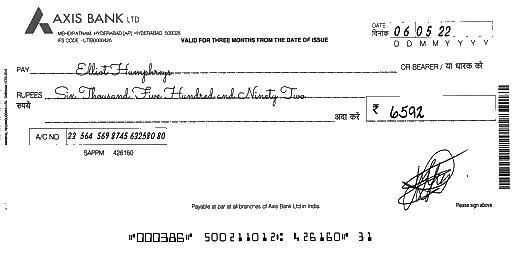 AXIS BANK LTD
MEHDIPATNAM, HYDERABAD [AP] HYDERABAD 500028
IFS CODE - UTIB0000426
VALID FOR THREE MONTHS FROM THE DATE OF ISSUE
DATE
दिनांक 06 05 22
D D M M Y Y Y Y
PAY Elliot Humphreys OR BEARER / या धारक को
RUPEES Six Thousand Five Hundred and Ninety Two
रुपये अदा करें ₹ 6592
A/C NO 23 564 569 8745 632580 80
SAPPM 426160
Payable at par at all branches of Axis Bank Ltd in India.
Please sign above
⑈000386⑈ 500211012⑆ 426160⑈ 31